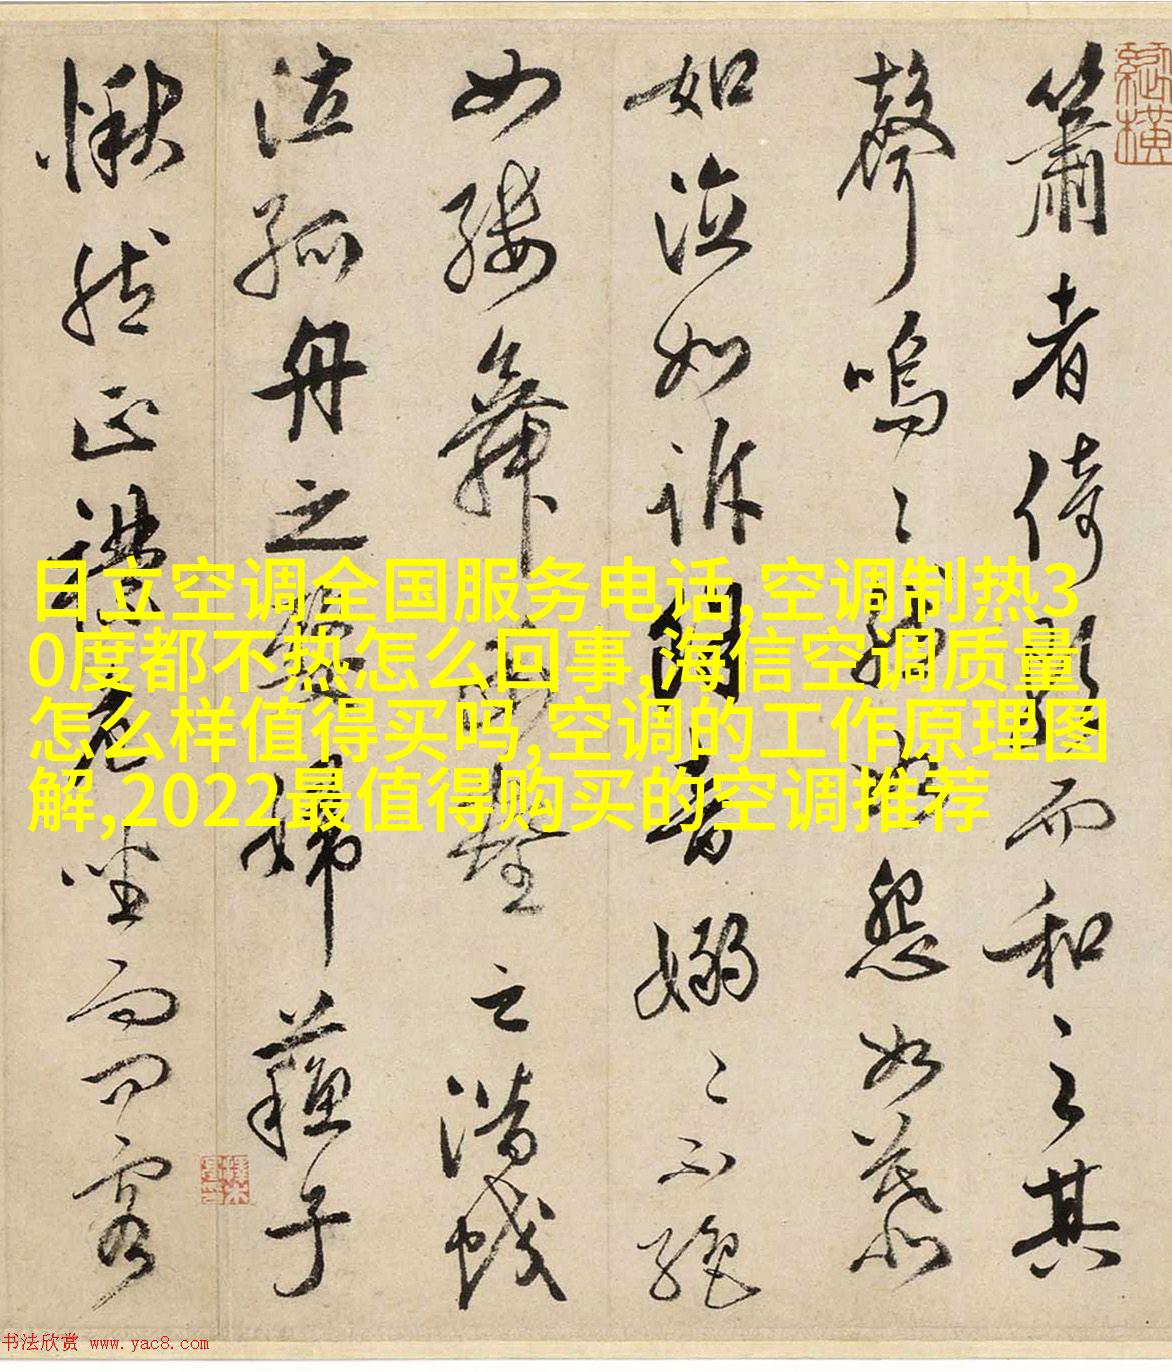 簫者倚歌而和之其
聲嗚〻然如怨如慕
如泣如訴餘音嫋〻不絕
如縷舞幽壑之潛蛟
泣孤舟之嫠婦蘇子
愀然正襟危坐而問客
日立空调全国服务电话,空调制热3
0度都不热怎么回事,海信空调质量
怎么样值得买吗,空调的工作原理图
解,2022最值得购买的空调推荐
书法欣赏 www.yac8.com